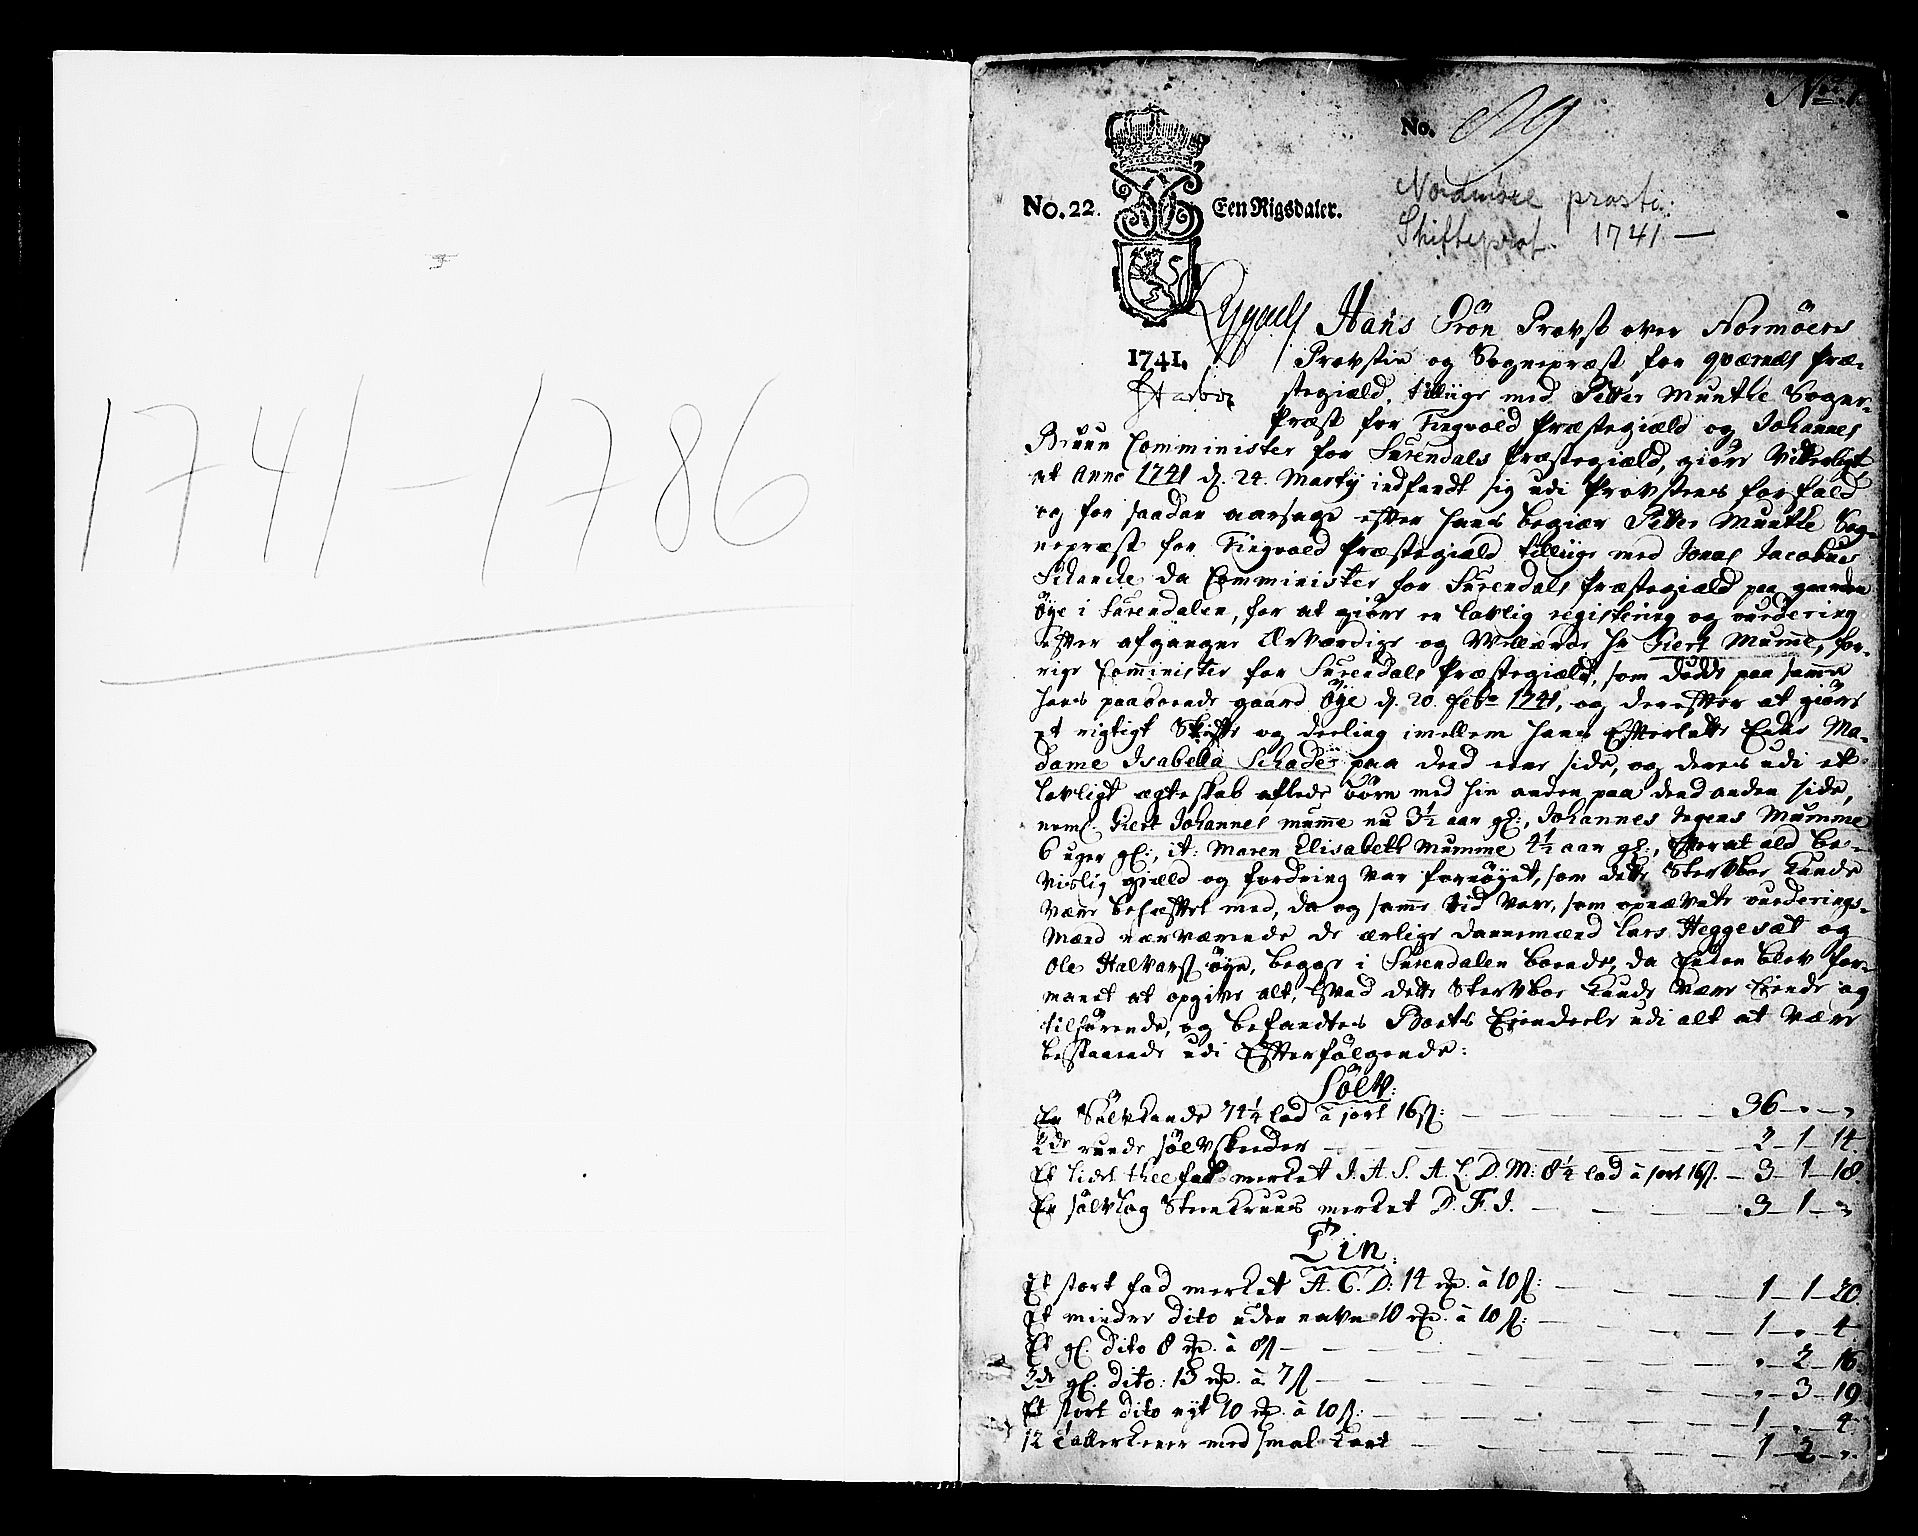 1741-1786
No. 1
No. 89
No. 22. Een Rigsdaler.
Nordmöre prosti:
Skifteprot. 1741 —
1741.
Hans Grön Provst over Normöers
Provstie og Sognepræst for qværnæs Præ-
stegiæld, tilliige med Petter Munthe Sogne-
Præst for Tingvold Præstegiæld og Johannes
Bruun Comminister for Surendals Præstegiæld, giöre Vitterligt
at Anno 1741 d. 24. Martij indfandt sig udi Provstens forfald
og for saadan aarsage efter hans begiær Petter Munthe Sog-
nepræst for Tingvold Præstegiæld tilliige med Jonas Jacobus
Schancke da Comminister for Surendals Præstegiæld paa gaarden
Öye i Surendalen, for at giöre en lovlig registering og vurdering
efter afgangne Ærværdige og Vellærde Hr Giert Mumme, for-
rige Comminister for Surendals Præstegiæld, som döde paa samme
hans paaboende gaard Öye d. 20. Feb: 1741, og derefter at giöre
et rigtigt Skifte og deeling imellem hans Efterlatte Enke Ma-
dame Isabella Schade paa dend eene side, og deres udi et
lovligt ægteskab aflede börn med hin anden paa dend anden side,
neml. Giert Johannes mumme nu 3½ aar gl:, Johannes Jegens Mumme
6 uger gl:, it: Maren Elisabeth Mumme 4½ aar gl:, Efter at ald be-
viislig giæld og fordring var fornöyet, som dette Sterboe kunde
være behæftet med, da og samme tid vare, som opnævnte vurderings-
Mænd nærværende de ærlige dannemænd Lars Heggesæt og
Ole Halvars: öye, begge i Surendalen boende, da Enken blev for-
manet at opgive alt, hvad dette Sterboe kunde være Eiende og
tilhörende, og befandtes Boets Eiendeele udi alt at være
bestaaende udi Efterfölgende:
Sölv:
En Sölvkande 74¼ lod à sort 16ß: — 36 - „ - „
2de runde sölvskeeder — 2 - 1 - 14.
Et lidet thee fad merket J. A. S. A. C. D. M: 8½ lod à sort 16ß. — 3 - 1 - 18.
En sölvlog Steenkruus merket D. F. J. — 3 - 1 - „
Tin:
Et stort fad merket A. C. D: 14 mp. à 10ß: — 1 - 1 - 20.
Et mindre dito uden navn 10 mp. à 10ß: — 1 - „ - 4
Et gl. dito 8 mp. à 8ß — „ - 2 - 16.
2de gl. dito: 13 mp. à 7ß — „ - 3 - 19
Et stort dito nyt 10 mp. à 10ß: — 1 - „ - 4
12 tallerkener med smal kant — 1 - 2 - „